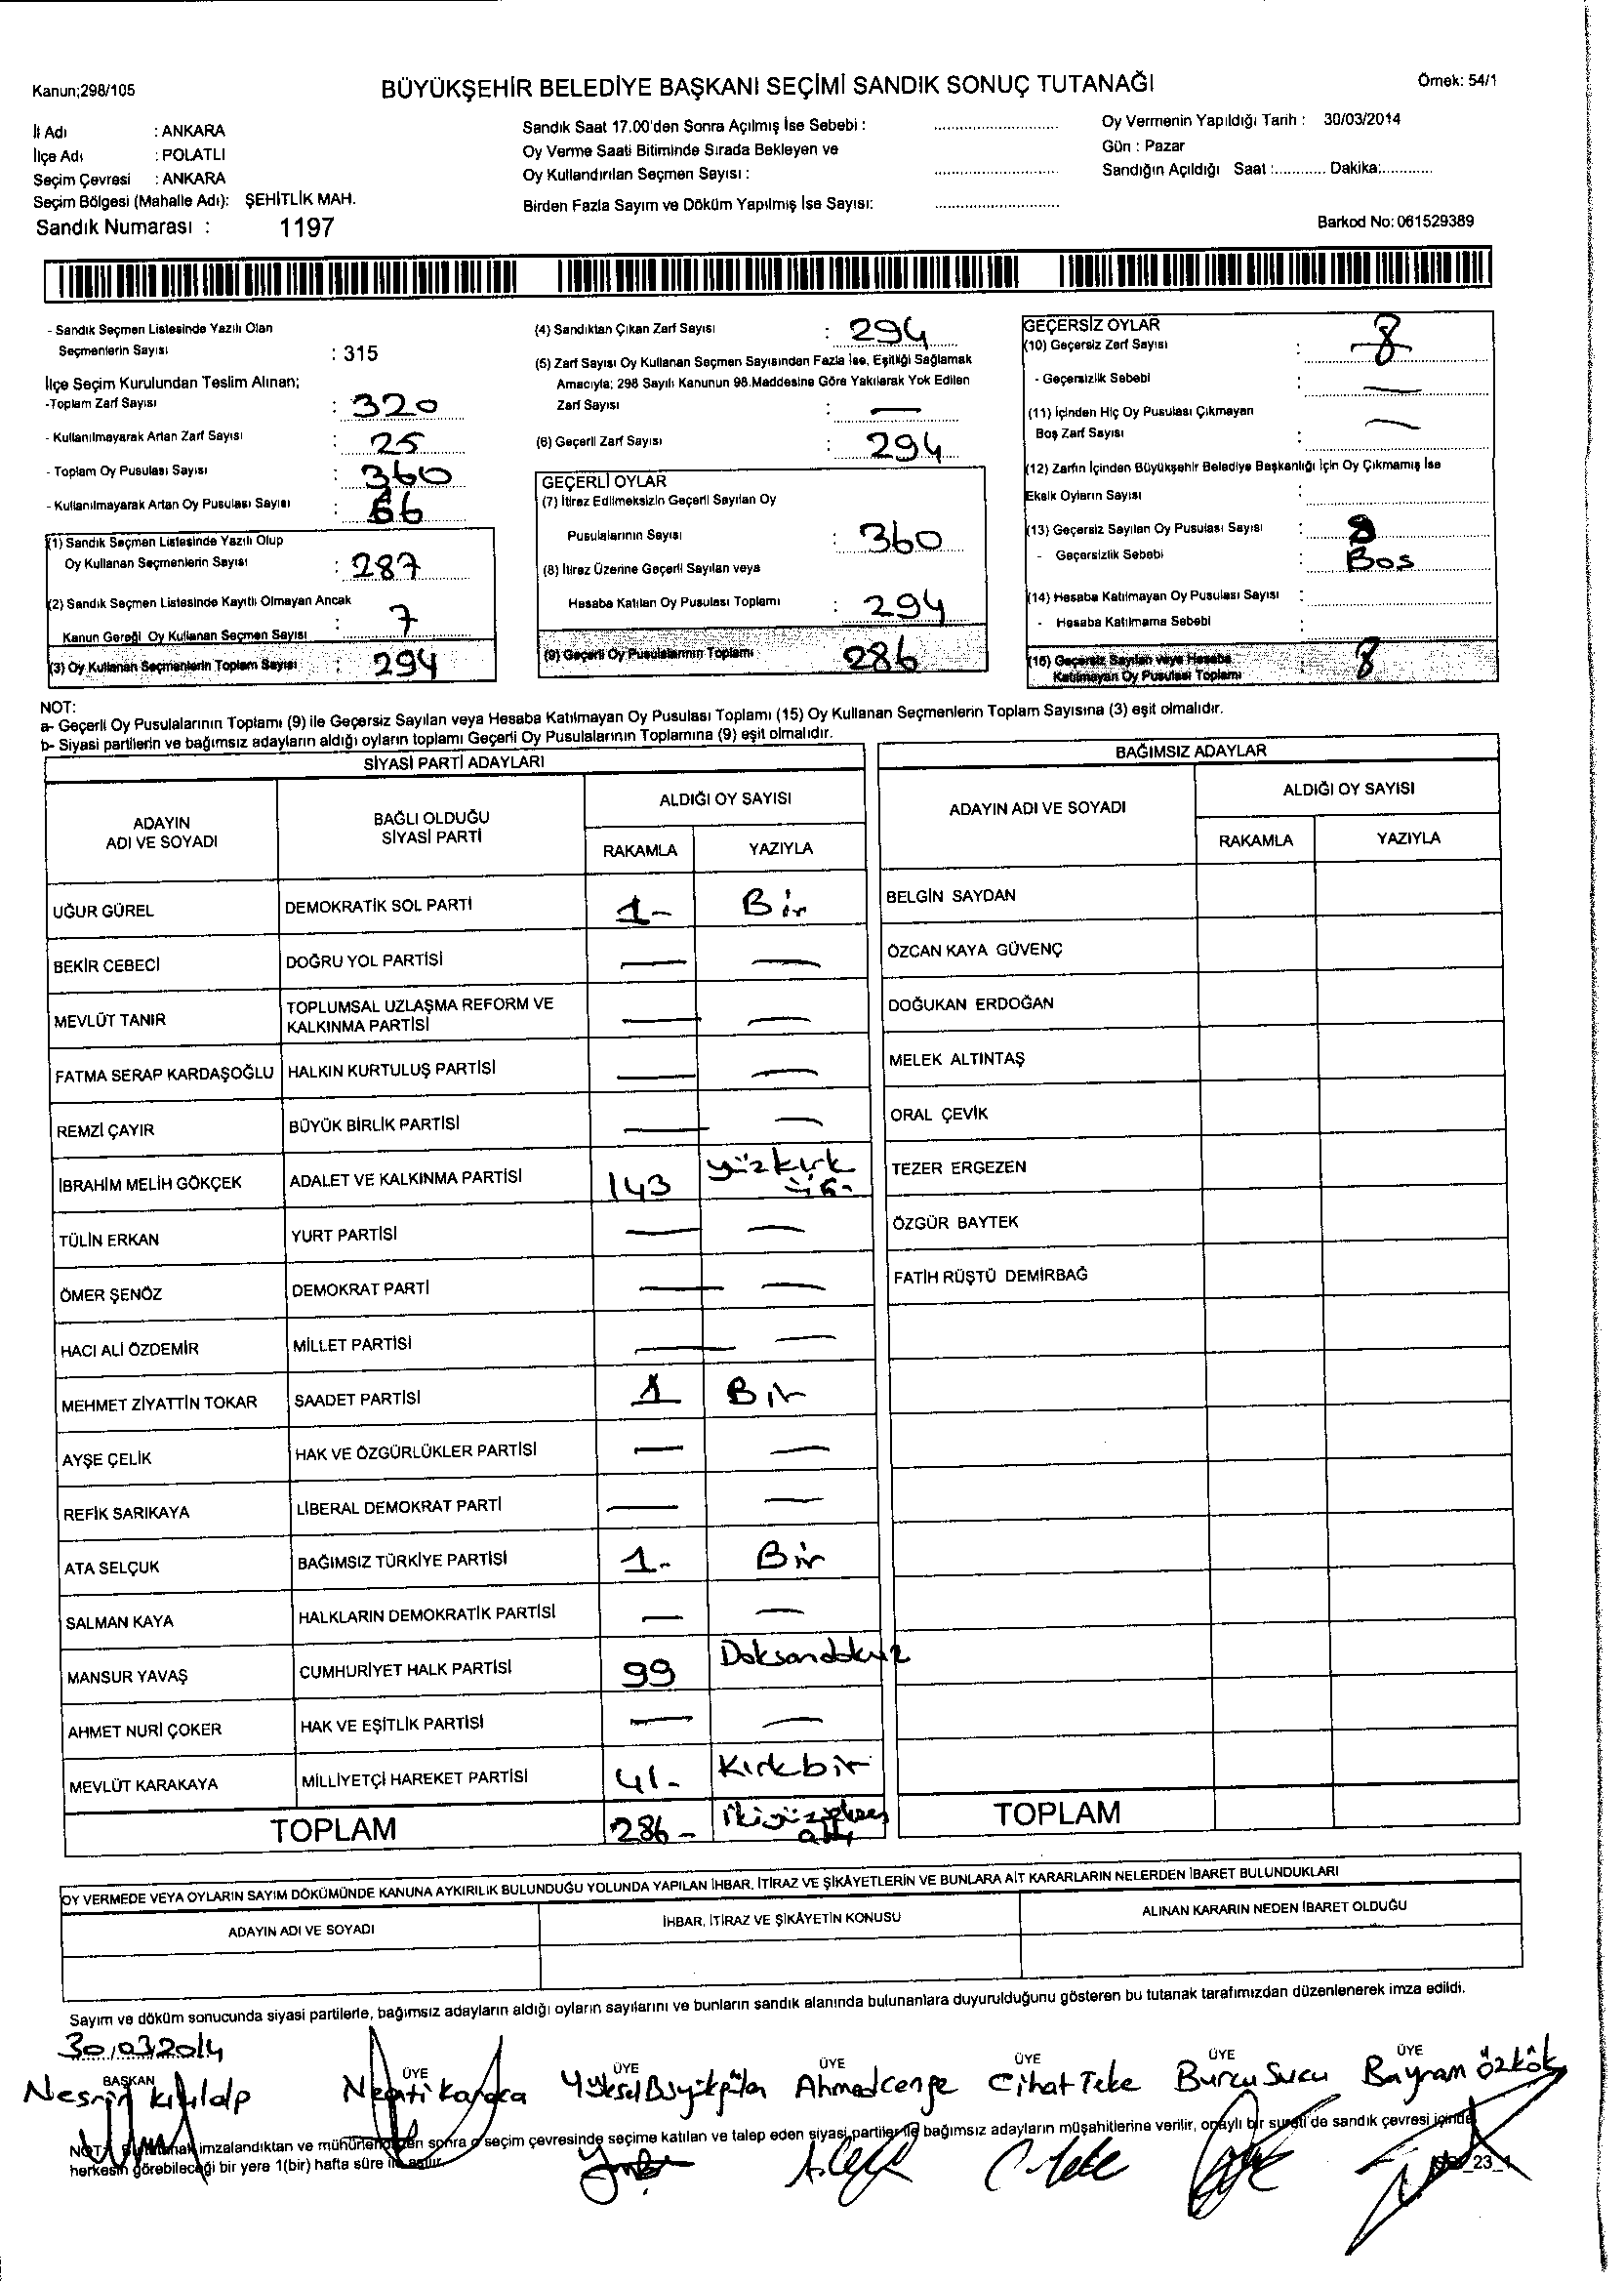 Kanun;298/105
BÜYÜKŞEHİR BELEDİYE BAŞKANI SEÇİMİ SANDIK SONUÇ TUTANAĞI
Örnek: 54/1
İl Adı : ANKARA
İlçe Adı : POLATLI
Seçim Çevresi : ANKARA
Seçim Bölgesi (Mahalle Adı): ŞEHİTLİK MAH.
Sandık Numarası : 1197
Sandık Saat 17.00'den Sonra Açılmış İse Sebebi :
Oy Verme Saati Bitiminde Sırada Bekleyen ve
Oy Kullandırılan Seçmen Sayısı :
Birden Fazla Sayım ve Döküm Yapılmış İse Sayısı:
Oy Vermenin Yapıldığı Tarih : 30/03/2014
Gün : Pazar
Sandığın Açıldığı Saat :............ Dakika:............
Barkod No: 061529389
- Sandık Seçmen Listesinde Yazılı Olan
Seçmenlerin Sayısı : 315
İlçe Seçim Kurulundan Teslim Alınan;
-Toplam Zarf Sayısı : 320
- Kullanılmayarak Artan Zarf Sayısı : 25
- Toplam Oy Pusulası Sayısı : 360
- Kullanılmayarak Artan Oy Pusulası Sayısı : 66
(1) Sandık Seçmen Listesinde Yazılı Olup
Oy Kullanan Seçmenlerin Sayısı : 287
(2) Sandık Seçmen Listesinde Kayıtlı Olmayan Ancak
Kanun Gereği Oy Kullanan Seçmen Sayısı : 7
(3) Oy Kullanan Seçmenlerin Toplam Sayısı : 294
(4) Sandıktan Çıkan Zarf Sayısı : 294
(5) Zarf Sayısı Oy Kullanan Seçmen Sayısından Fazla İse, Eşitliği Sağlamak
Amacıyla; 298 Sayılı Kanunun 98.Maddesine Göre Yakılarak Yok Edilen
Zarf Sayısı : —
(6) Geçerli Zarf Sayısı : 294
GEÇERLİ OYLAR
(7) İtiraz Edilmeksizin Geçerli Sayılan Oy
Pusulalarının Sayısı : 360
(8) İtiraz Üzerine Geçerli Sayılan veya
Hesaba Katılan Oy Pusulası Toplamı : 294
(9) Geçerli Oy Pusulalarının Toplamı 286
GEÇERSİZ OYLAR
(10) Geçersiz Zarf Sayısı : 8
- Geçersizlik Sebebi : —
(11) İçinden Hiç Oy Pusulası Çıkmayan
Boş Zarf Sayısı : —
(12) Zarfın İçinden Büyükşehir Belediye Başkanlığı İçin Oy Çıkmamış İse
Eksik Oyların Sayısı :
(13) Geçersiz Sayılan Oy Pusulası Sayısı : 8
- Geçersizlik Sebebi : Bos
(14) Hesaba Katılmayan Oy Pusulası Sayısı :
- Hesaba Katılmama Sebebi :
(15) Geçersiz Sayılan veya Hesaba
Katılmayan Oy Pusulası Toplamı : 8
NOT:
a- Geçerli Oy Pusulalarının Toplamı (9) ile Geçersiz Sayılan veya Hesaba Katılmayan Oy Pusulası Toplamı (15) Oy Kullanan Seçmenlerin Toplam Sayısına (3) eşit olmalıdır.
b- Siyasi partilerin ve bağımsız adayların aldığı oyların toplamı Geçerli Oy Pusulalarının Toplamına (9) eşit olmalıdır.
SİYASİ PARTİ ADAYLARI
ADAYIN ADI VE SOYADI BAĞLI OLDUĞU SİYASİ PARTİ ALDIĞI OY SAYISI
RAKAMLA YAZIYLA
UĞUR GÜREL DEMOKRATİK SOL PARTİ 1- Bir
BEKİR CEBECİ DOĞRU YOL PARTİSİ — —
MEVLÜT TANIR TOPLUMSAL UZLAŞMA REFORM VE KALKINMA PARTİSİ — —
FATMA SERAP KARDAŞOĞLU HALKIN KURTULUŞ PARTİSİ — —
REMZİ ÇAYIR BÜYÜK BİRLİK PARTİSİ — —
İBRAHİM MELİH GÖKÇEK ADALET VE KALKINMA PARTİSİ 143 yüzkırk üç-
TÜLİN ERKAN YURT PARTİSİ — —
ÖMER ŞENÖZ DEMOKRAT PARTİ — —
HACI ALİ ÖZDEMİR MİLLET PARTİSİ — —
MEHMET ZİYATTİN TOKAR SAADET PARTİSİ 1 Bir
AYŞE ÇELİK HAK VE ÖZGÜRLÜKLER PARTİSİ — —
REFİK SARIKAYA LİBERAL DEMOKRAT PARTİ — —
ATA SELÇUK BAĞIMSIZ TÜRKİYE PARTİSİ 1- Bir
SALMAN KAYA HALKLARIN DEMOKRATİK PARTİSİ — —
MANSUR YAVAŞ CUMHURİYET HALK PARTİSİ 99 Doksandokuz
AHMET NURİ ÇOKER HAK VE EŞİTLİK PARTİSİ — —
MEVLÜT KARAKAYA MİLLİYETÇİ HAREKET PARTİSİ 41- Kırkbir
TOPLAM 286- ikiyüzseksen altı
BAĞIMSIZ ADAYLAR
ADAYIN ADI VE SOYADI ALDIĞI OY SAYISI
RAKAMLA YAZIYLA
BELGİN SAYDAN
ÖZCAN KAYA GÜVENÇ
DOĞUKAN ERDOĞAN
MELEK ALTINTAŞ
ORAL ÇEVİK
TEZER ERGEZEN
ÖZGÜR BAYTEK
FATİH RÜŞTÜ DEMİRBAĞ
TOPLAM
OY VERMEDE VEYA OYLARIN SAYIM DÖKÜMÜNDE KANUNA AYKIRILIK BULUNDUĞU YOLUNDA YAPILAN İHBAR, İTİRAZ VE ŞİKAYETLERİN VE BUNLARA AİT KARARLARIN NELERDEN İBARET BULUNDUKLARI
ADAYIN ADI VE SOYADI İHBAR, İTİRAZ VE ŞİKÂYETİN KONUSU ALINAN KARARIN NEDEN İBARET OLDUĞU
Sayım ve döküm sonucunda siyasi partilerle, bağımsız adayların aldığı oyların sayılarını ve bunların sandık alanında bulunanlara duyurulduğunu gösteren bu tutanak tarafımızdan düzenlenerek imza edildi.
30/03/2014
BAŞKAN ÜYE ÜYE ÜYE ÜYE ÜYE ÜYE
Nesrin Kızılalp Negati Karaca Yüksel Büyük Ahmed cenge Cihat Teke Burcu Sucu Bayram Özkök
NOT: Bu tutanak imzalandıktan ve mühürlendikten sonra o seçim çevresinde seçime katılan ve talep eden siyasi partiler ile bağımsız adayların müşahitlerine verilir, onaylı bir sureti de sandık çevresi içinde
herkesin görebileceği bir yere 1(bir) hafta süre ile asılır.
C. Teke